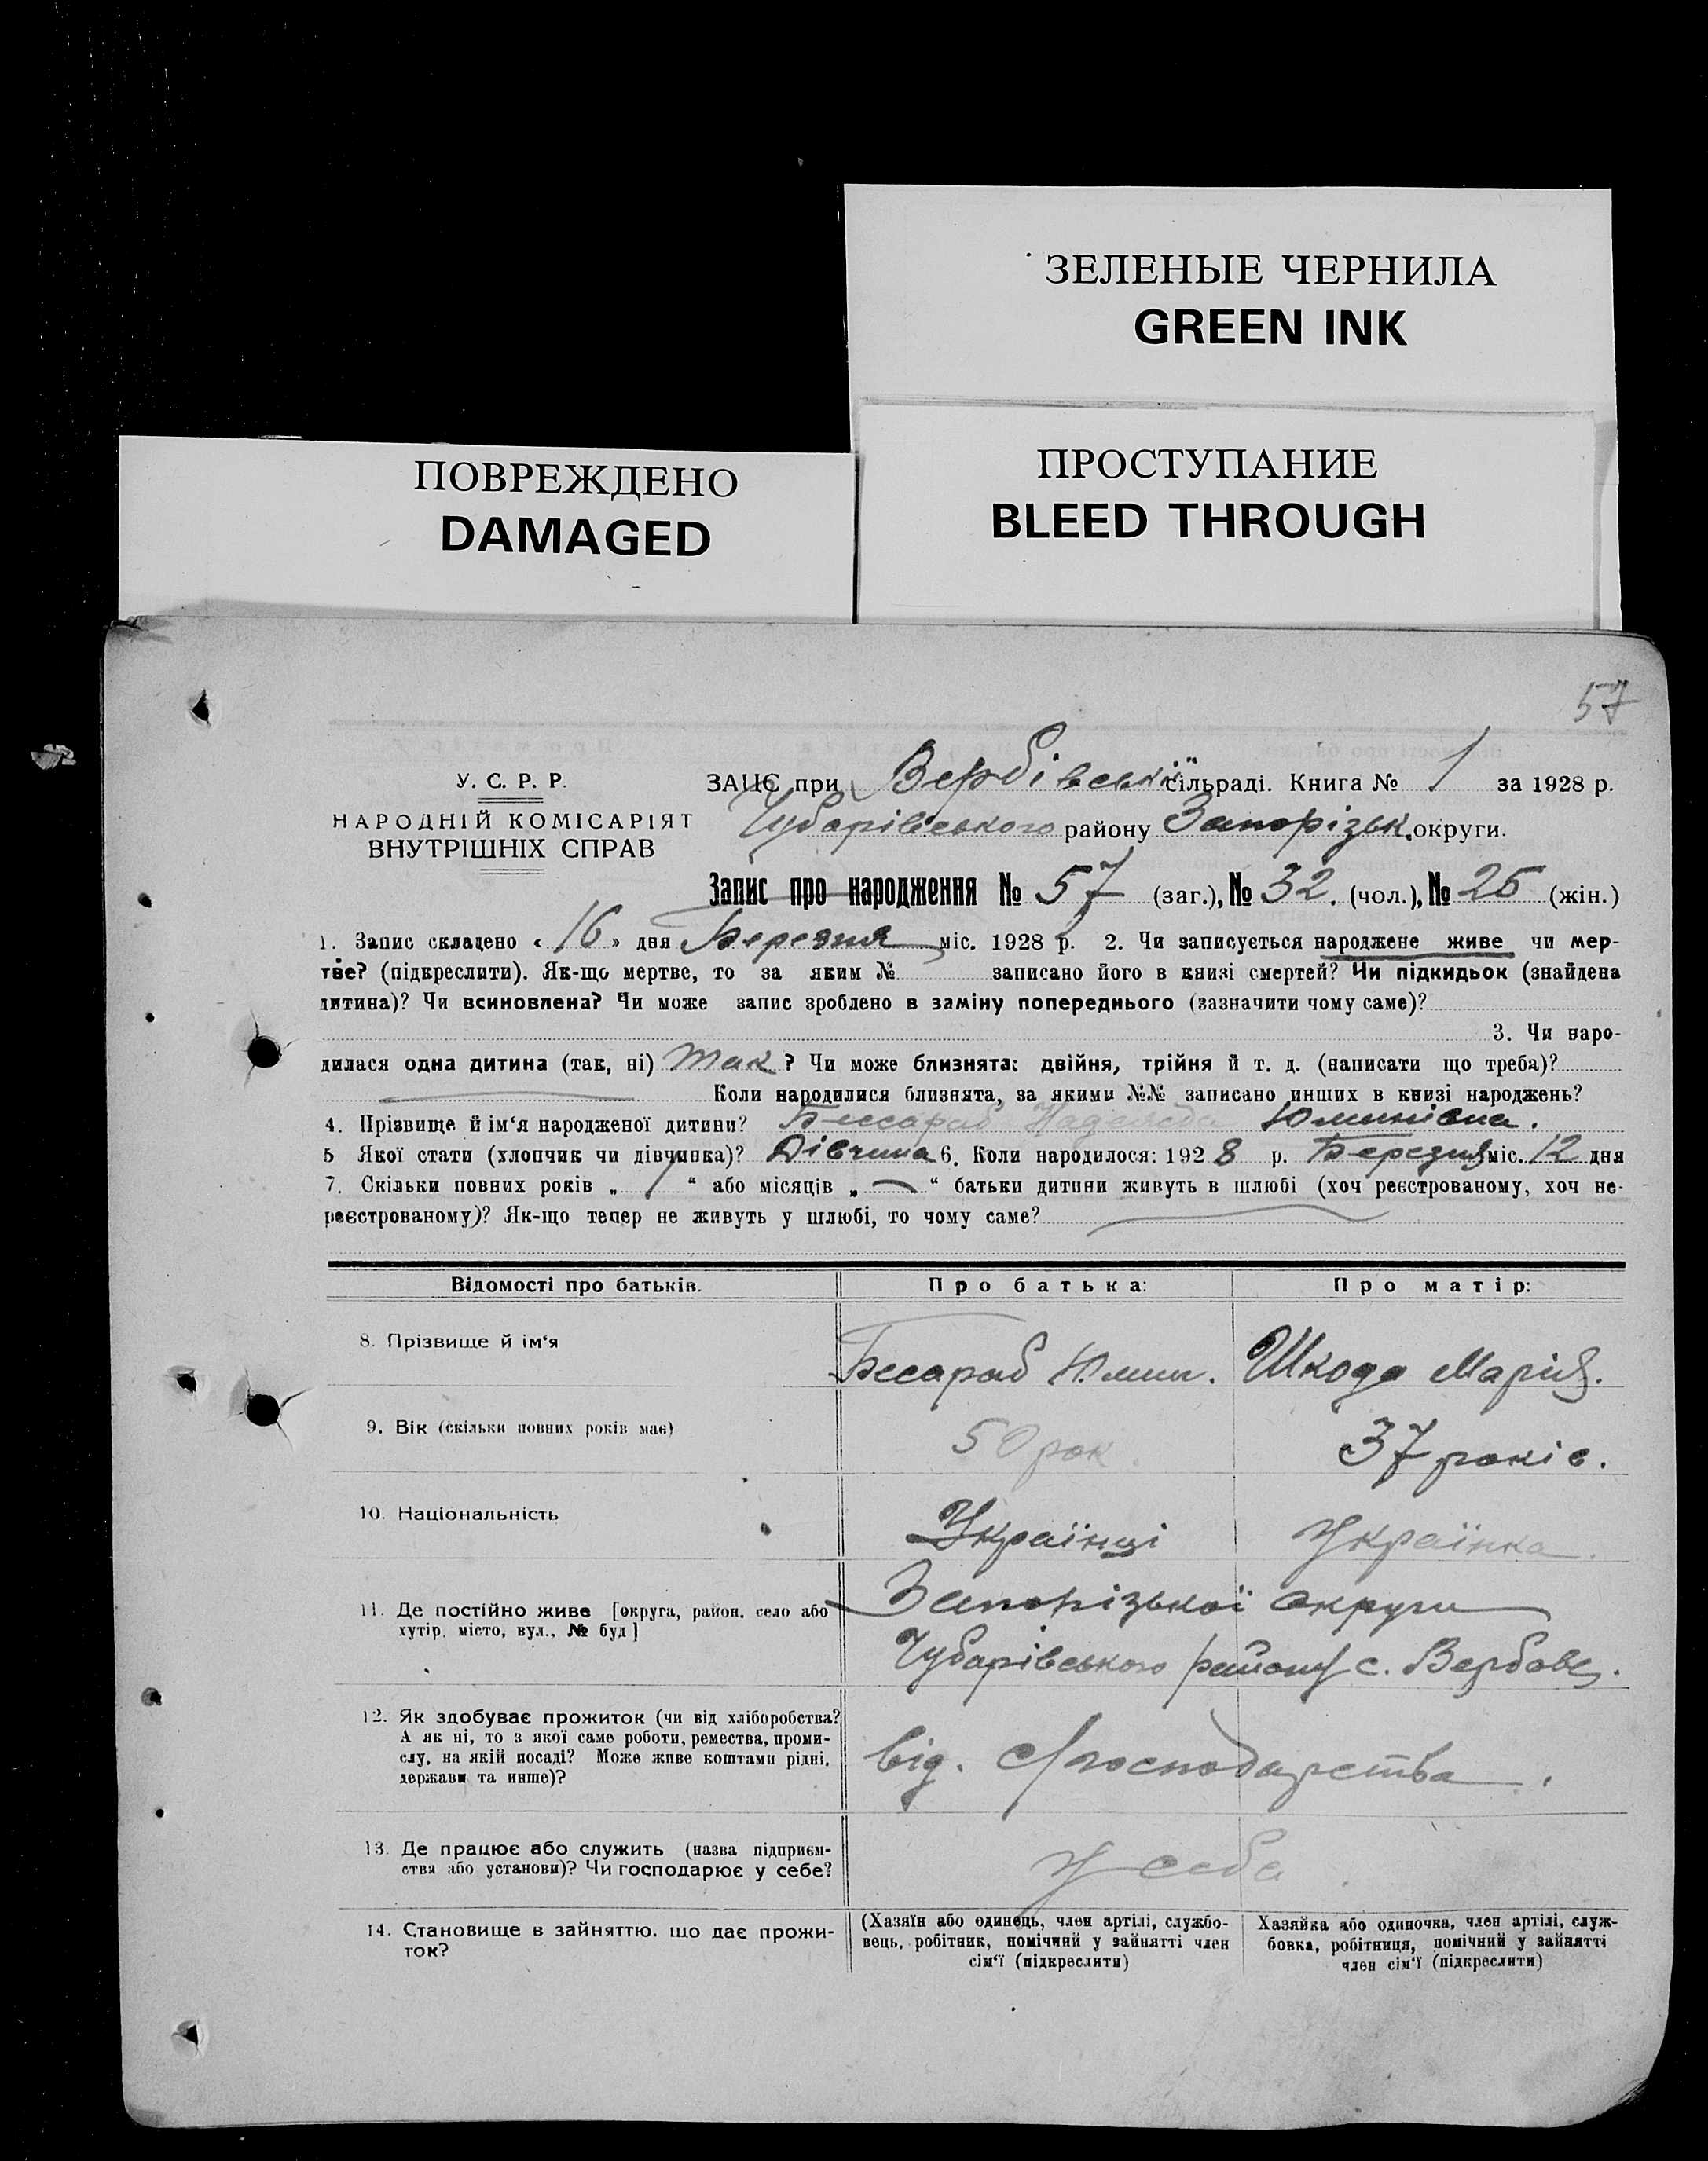 ЗЕЛЕНЫЕ ЧЕРНИЛА
GREEN INK
ПОВРЕЖДЕНО
DAMAGED
ПРОСТУПАНИЕ
BLEED THROUGH
57
У. С. Р. Р.
НАРОДНІЙ КОМІСАРІЯТ
ВНУТРІШНІХ СПРАВ
ЗАЦС при Вербівській сільраді. Книга № 1 за 1928 р.
Чубарівського району Запорізьк. округи.
Запис про народження № 57 (заг.), № 32. (чол.), № 25 (жін.)
1. Запис складено « 16 » дня Березня міс. 1928 р. 2. Чи записується народжене живе чи мер-
тве? (підкреслити). Як-що мертве, то за яким № записано його в книзі смертей? Чи підкидьок (знайдена
дитина)? Чи всиновлена? Чи може запис зроблено в заміну попереднього (зазначити чому саме)?
3. Чи наро-
дилася одна дитина (так, ні) Так ? Чи може близнята: двійня, трійня й т. д. (написати що треба)?
Коли народилися близнята, за якими №№ записано инших в книзі народжень?
4. Прізвище й ім‘я народженої дитини? Бессараб Надежда Юминівна.
5 Якої стати (хлопчик чи дівчинка)? Дівчина 6. Коли народилося: 1928 р. Березня міс. 12 дня
7. Скільки повних років „ 1 “ або місяців „ — “ батьки дитини живуть в шлюбі (хоч реєстрованому, хоч не-
реєстрованому)? Як-що тепер не живуть у шлюбі, то чому саме?
Відомості про батьків. Про батька: Про матір:
8. Прізвище й ім‘я Бесараб Юмин. Шкода Марія.
9. Вік (скільки повних років має) 50 рок. 37 років.
10. Національність Українці Українка.
11. Де постійно живе [округа, район, село або
хутір, місто, вул., № буд] Запорізької округи
Чубарівського району с. Вербове.
12. Як здобуває прожиток (чи від хліборобства?
А як ні, то з якої саме роботи, ремества, проми-
слу, на якій посаді? Може живе коштами рідні,
держави та инше)? від. с/господарства.
13. Де працює або служить (назва підприєм-
ства або установи)? Чи господарює у себе? У себе
14. Становище в зайняттю, що дає прожи-
ток?
(Хазяїн або одинець, член артілі, службо-
вець, робітник, помічний у зайнятті член
сім‘ї (підкреслити)
Хазяйка або одиночка, член артілі, служ-
бовка, робітниця, помічний у зайнятті
член сім‘ї (підкреслити)